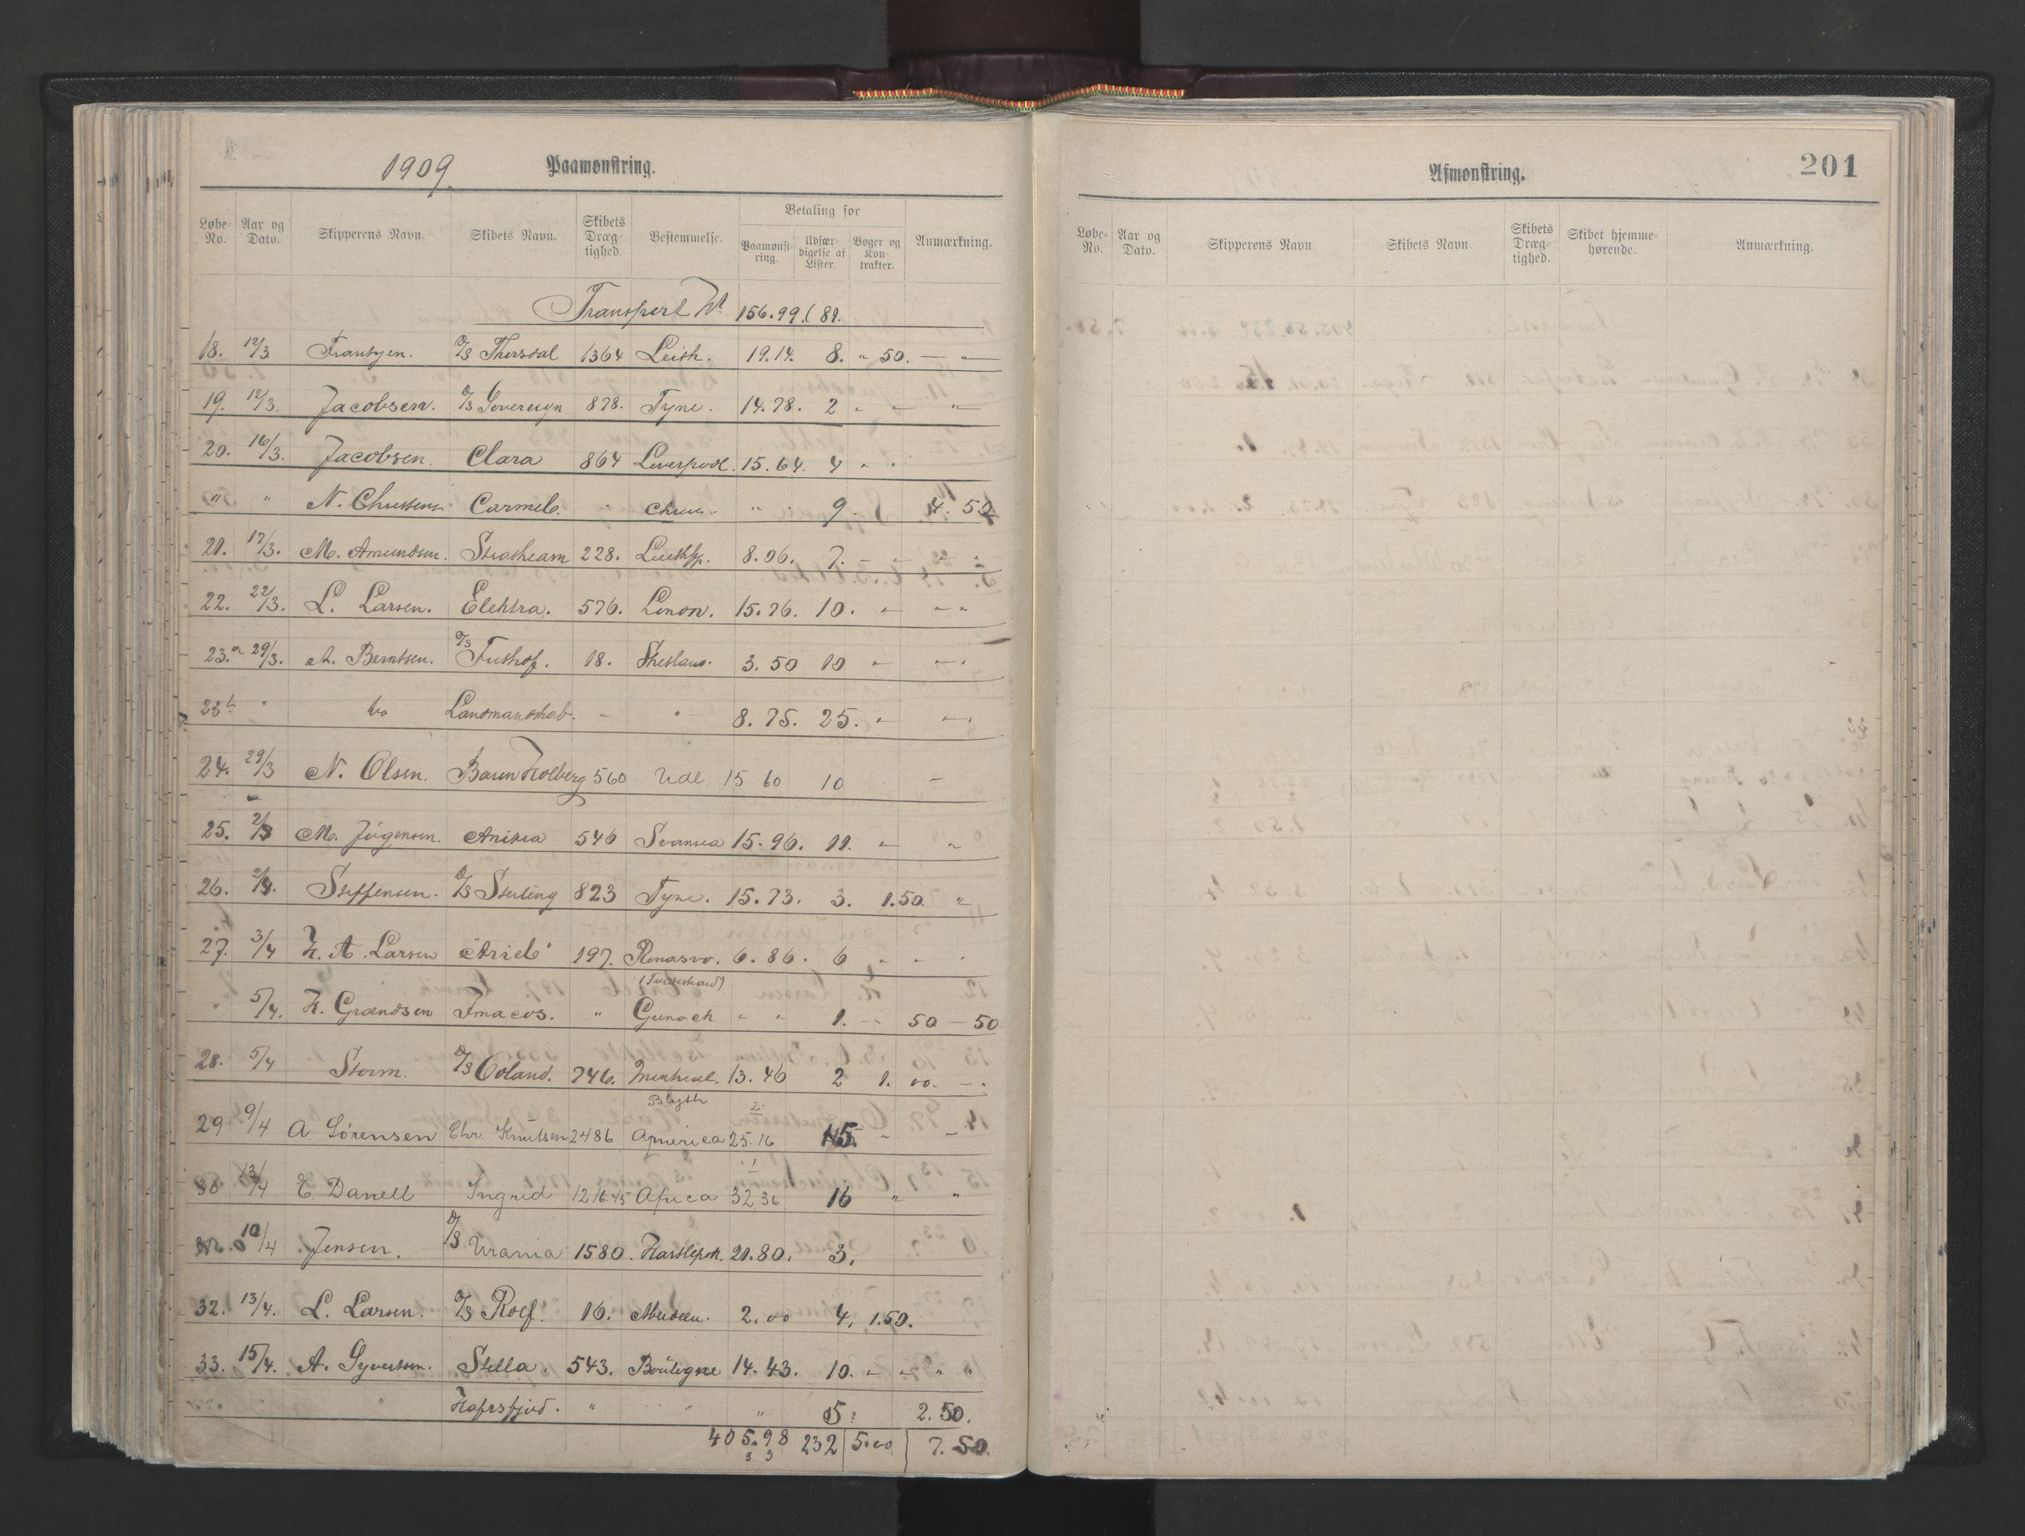 1909 Paamønstring.
Løbe-No. Aar og Dato. Skipperens Navn. Skibets Navn. Skibets Dræg-tighed. Bestemmelse. Betaling for Paamønst-ring. Udfær-digelse af Lister. Bøger og Kon-trakter. Anmærkning.
Transport 156.99 81.
18. 12/3 Frantzen. D/S Thorsdal 1364 Leith. 19.14. 8. " 50. — "
19. 12/3. Jacobsen. D/S Sovereign 878. Tyne. 14.78. 2 " " "
20. 16/3. Jacobsen. Clara 864 Liverpool. 15.64. 4 " "
" " N. Carmel. " " 9. 4. 50
21. 17/3. M. Amundsen. 228. 8.06. 7. " " "
22. 22/3. L. Larsen. Elektra. 576. Lonon. 15.76. 10. " " "
23.a 29/3. A. Berntsen. D/S 18. 3.50 10 " " "
23b " Do Landmandskab. " " 8.75. 25. " "
24. 29/3 N. Olsen. Baron Holberg 560 Udl. 15 60 10 —
25. M. Jørgensen. Anitra 546 Svansea 15.96. 11. " "
26. Steffensen. D/S Sterling 823 Tyne. 15.73. 3. 1.50. "
27. 3/4 H. A. Larsen Ariel 197. 6.86. 6 " " "
" 5/4. H. " 1. " 50 — 50
28. 5/4 Storm. D/S 746. 13.46 2 1.00. —.
Blyth
29 9/4 A Sørensen Chr. Knudsen 2486 America 25.16 15. " "
30 13/4 E. Danell Ingrid 1216.45 Africa 32 36 16 " "
10/4 Jensen. D/S Urania 1580. 21.80. 3.
32. 13/4. L. Larsen. D/S Rolf. 16. 2.00 4. 1.50.
33. 15/4. A. Syvertsen. Stella. 543. Boulogne 14.43. 10. " " " "
" " " Hafrsfjord. " " " 5 2.50.
405.98 232 5.00 7.50.
201
Afmønstring.
Løbe-No. Aar og Dato. Skipperens Navn. Skibets Navn. Skibets Dræg-tighed. Skibet hjemme-hørende. Anmærkning.